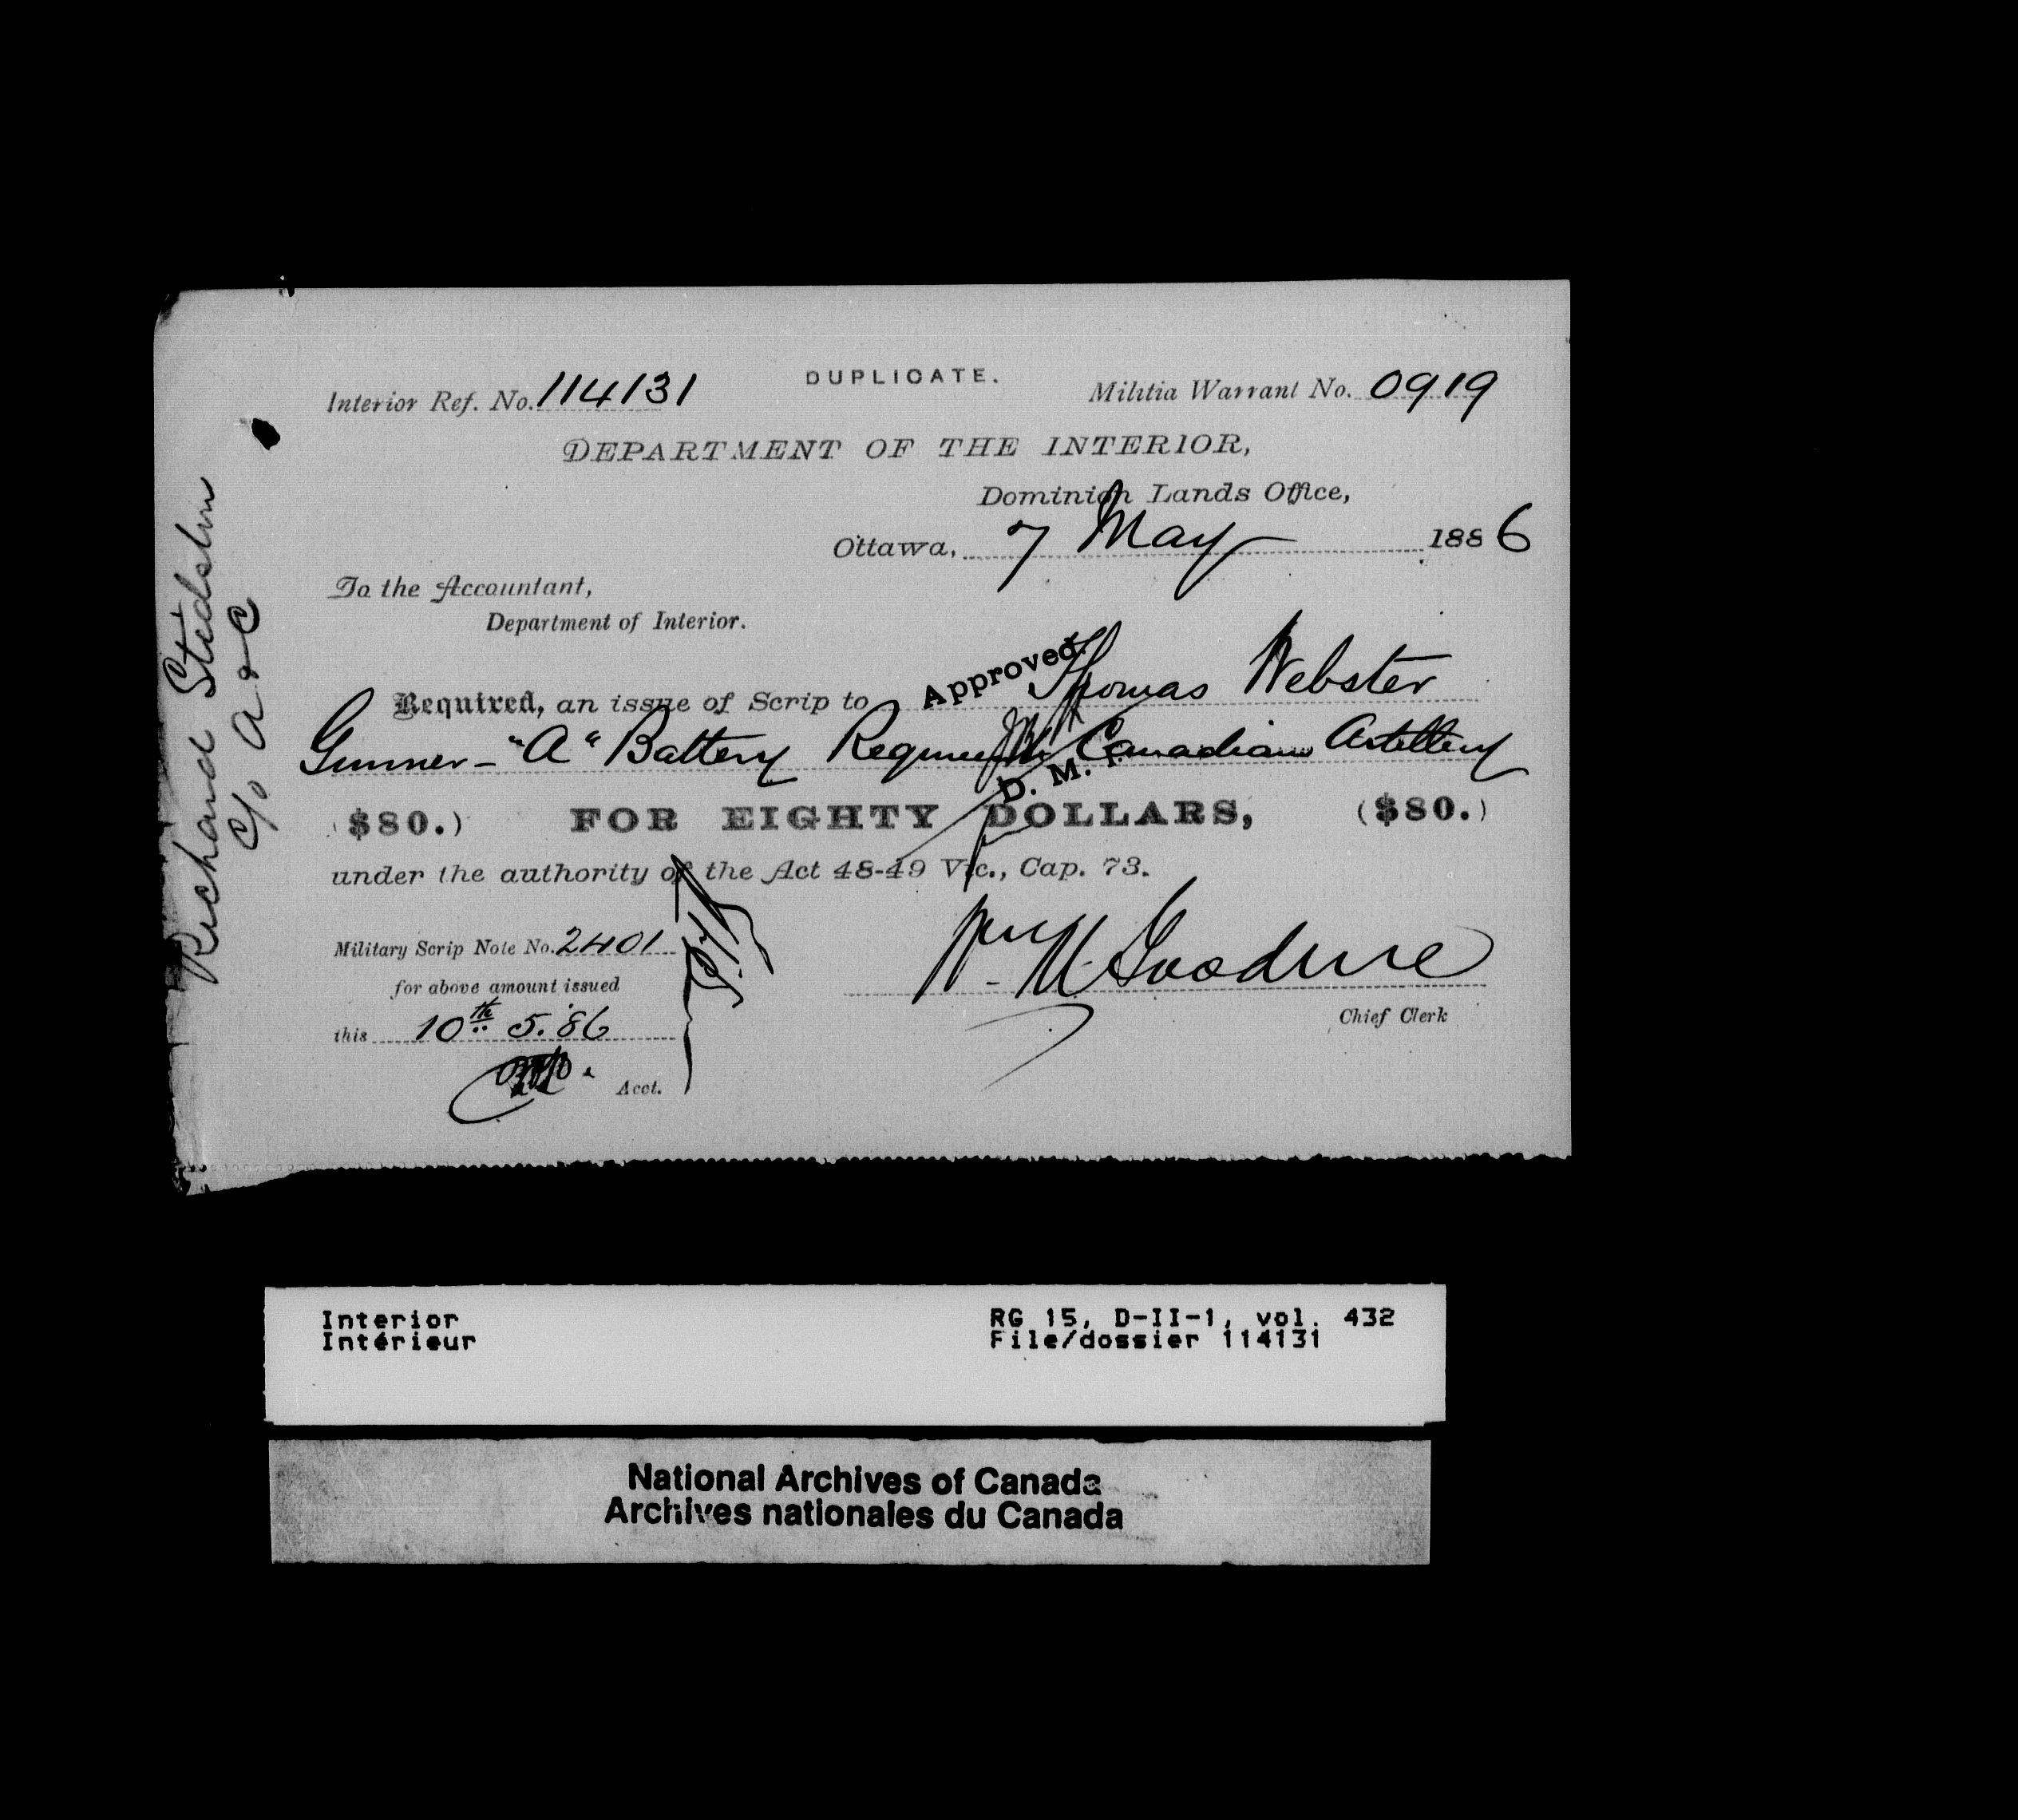 DUPLICATE.
Interior Ref. No. 114131
Militia Warrant No. 0919
DEPARTMENT OF THE INTERIOR,
Dominion Lands Office,
Ottawa, 7 May 1886
To the Accountant,
Department of Interior.
Approved.
Required, an issue of Scrip to Thomas Webster
Gunner - "A" Battery Regiment Canadian Artillery
D. M.
($80.) FOR EIGHTY DOLLARS, ($80.)
under the authority of the Act 48-49 Vic., Cap. 73.
Military Scrip Note No. 2401
for above amount issued
this 10th 5. 86
Acct.
Chief Clerk
Richard
c/o A & C
Interior
Intérieur
RG 15, D-II-1, vol. 432
File/dossier 114131
National Archives of Canada
Archives nationales du Canada